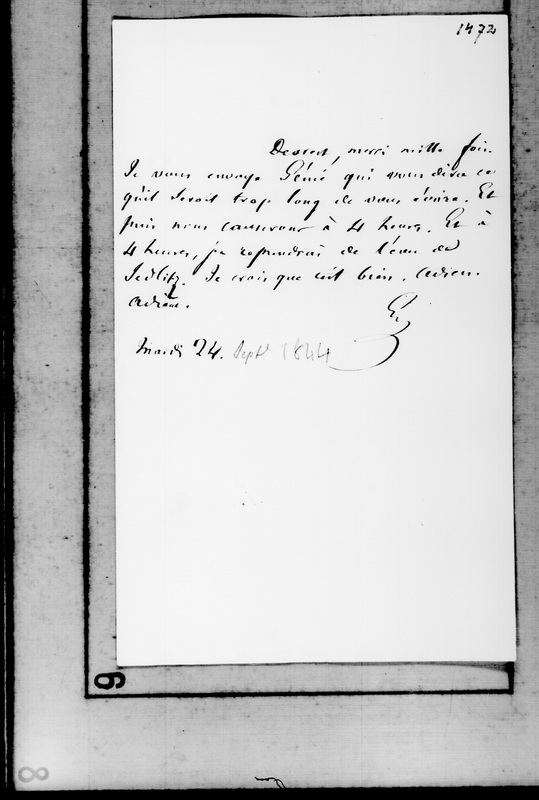 1472
Dearest, merci mille fois.
Je vous envoye Génie qui vous dira ce
qu'il seroit trop long de vous écrire. Et
puis nous causerons à 4 heures. Et à
4 heures, je reprendrai de l'eau de
Sedlitz. Je crois que c'est bien. Adieu.
Adieu.
G
Mardi 24. Septe 1844
9
8